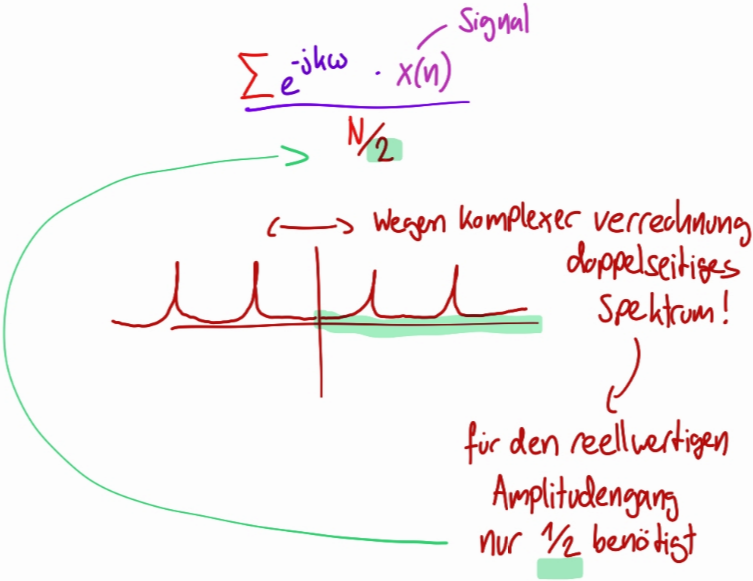 Signal
∑ e^-jkω · x(n)
N/2
Wegen komplexer verrechnung
doppelseitiges
Spektrum!
für den reellwertigen
Amplitudengang
nur 1/2 benötigt